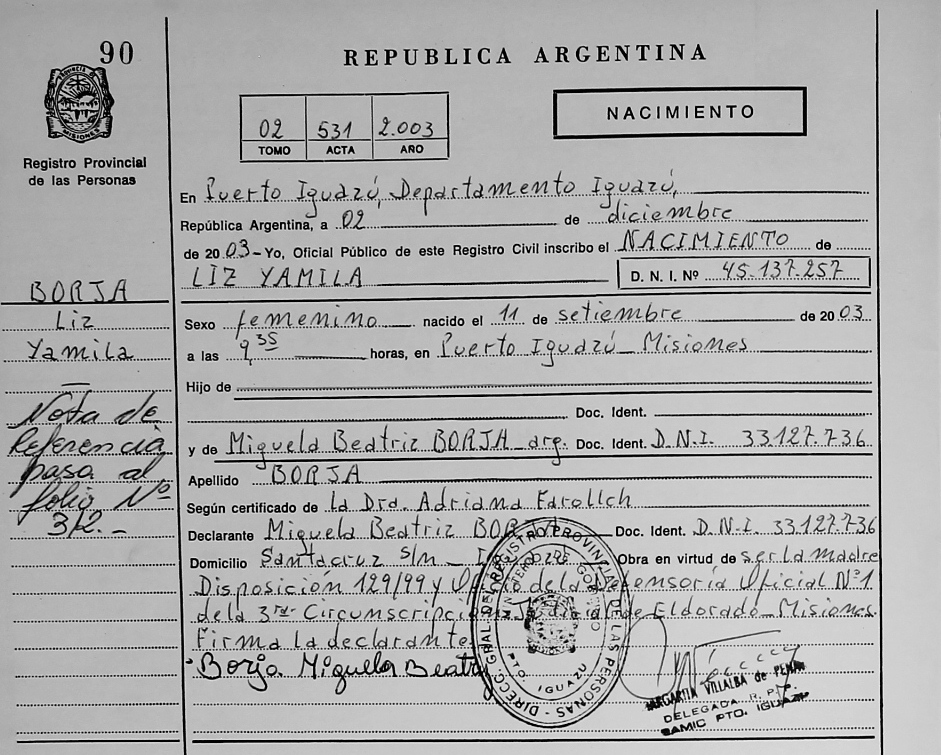 90
REPUBLICA ARGENTINA
PROVINCIA DE MISIONES
Registro Provincial
de las Personas
02 531 2.003
TOMO ACTA AÑO
NACIMIENTO
En Puerto Iguazú, Departamento Iguazú,
República Argentina, a 02 de diciembre
de 2003 - Yo, Oficial Público de este Registro Civil inscribo el NACIMIENTO de
LIZ YAMILA D. N. I. Nº 45.137.257
Sexo femenino nacido el 11 de setiembre de 2003
a las 9,35 horas, en Puerto Iguazú Misiones
Hijo de
Doc. Ident.
y de Miguela Beatriz BORJA arg. Doc. Ident. D.N.I. 33127.736
Apellido BORJA
Según certificado de la Dra. Adriana
Declarante Miguela Beatriz BORJA Doc. Ident. D.N.I. 33.127.736
Domicilio Santacruz s/n Obra en virtud de ser la madre
Disposición 129/99 y de la Defensoría Oficial Nº1
dela 3ra Circunscripción de Eldorado Misiones.
Firma la declarante
Borja Miguela Beatriz
BORJA
Liz
Yamila
Nota de
Referencia
pasa al
folio Nº
312.-
DIRECC. GRAL. DEL REGISTRO PROVINCIAL DE LAS PERSONAS
PTO. IGUAZU
VILLALBA de
DELEGADA R. P. P.
SAMIC PTO. IGUAZU